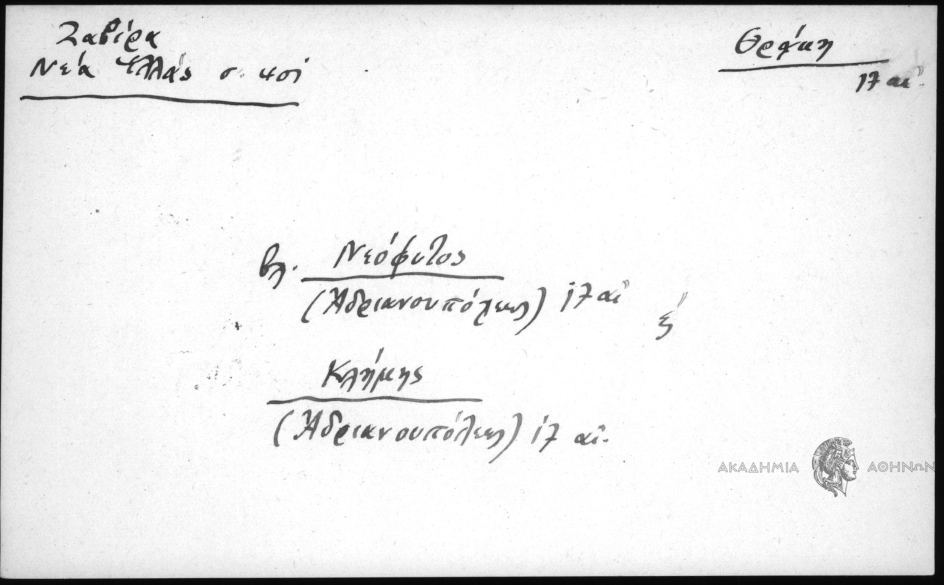 Ζαβίρα
Νέα Ἑλλάς σ.
Θράκη
17 αἰ.
βλ. Νεόφυτος
(Ἀδριανουπόλεως) 17 αἰ
Κλήμης
(Ἀδριανουπόλεως) 17 αἰ.
ΑΚΑΔΗΜΙΑ ΑΘΗΝΩΝ